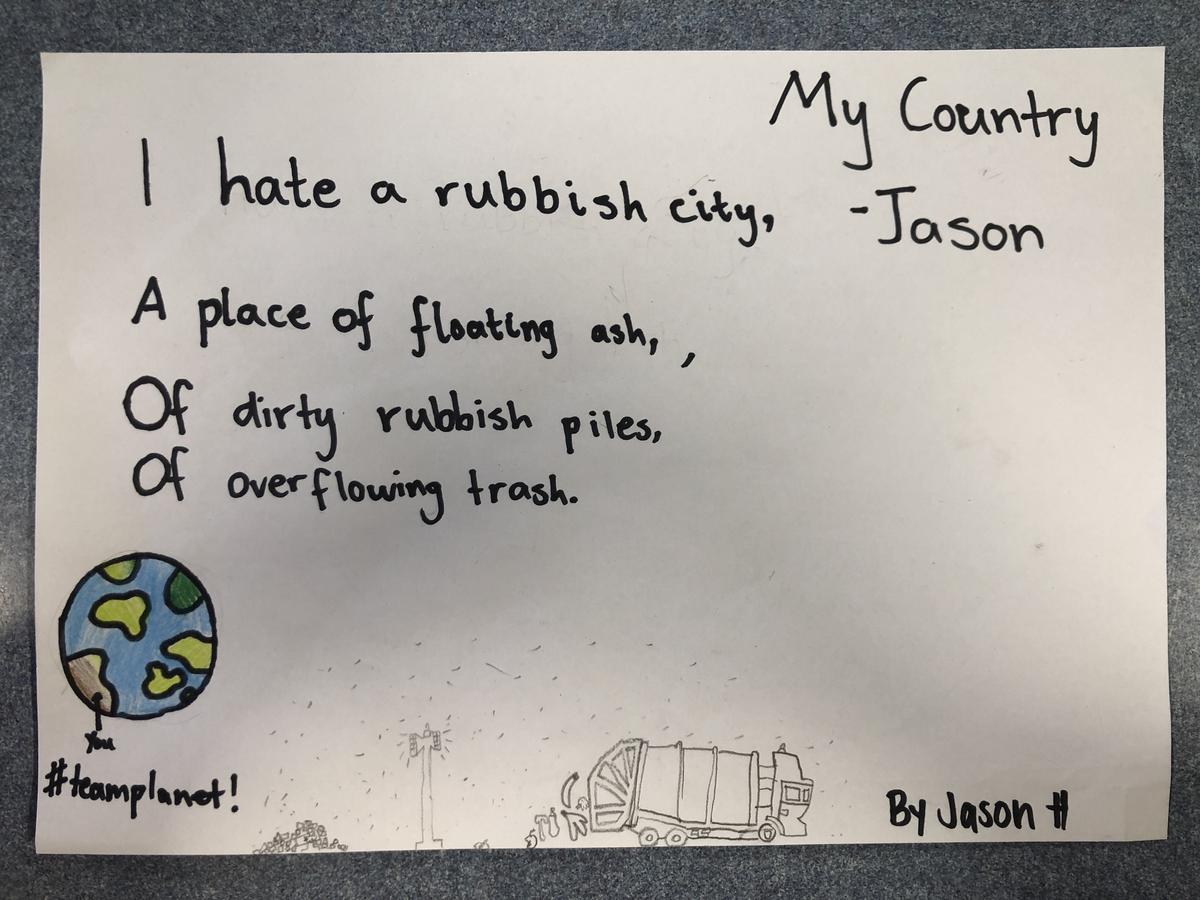 My Country
-Jason
I hate a rubbish city,
A place of floating ash, ,
Of dirty rubbish piles,
Of overflowing trash.
You
#teamplanet!
By Jason H